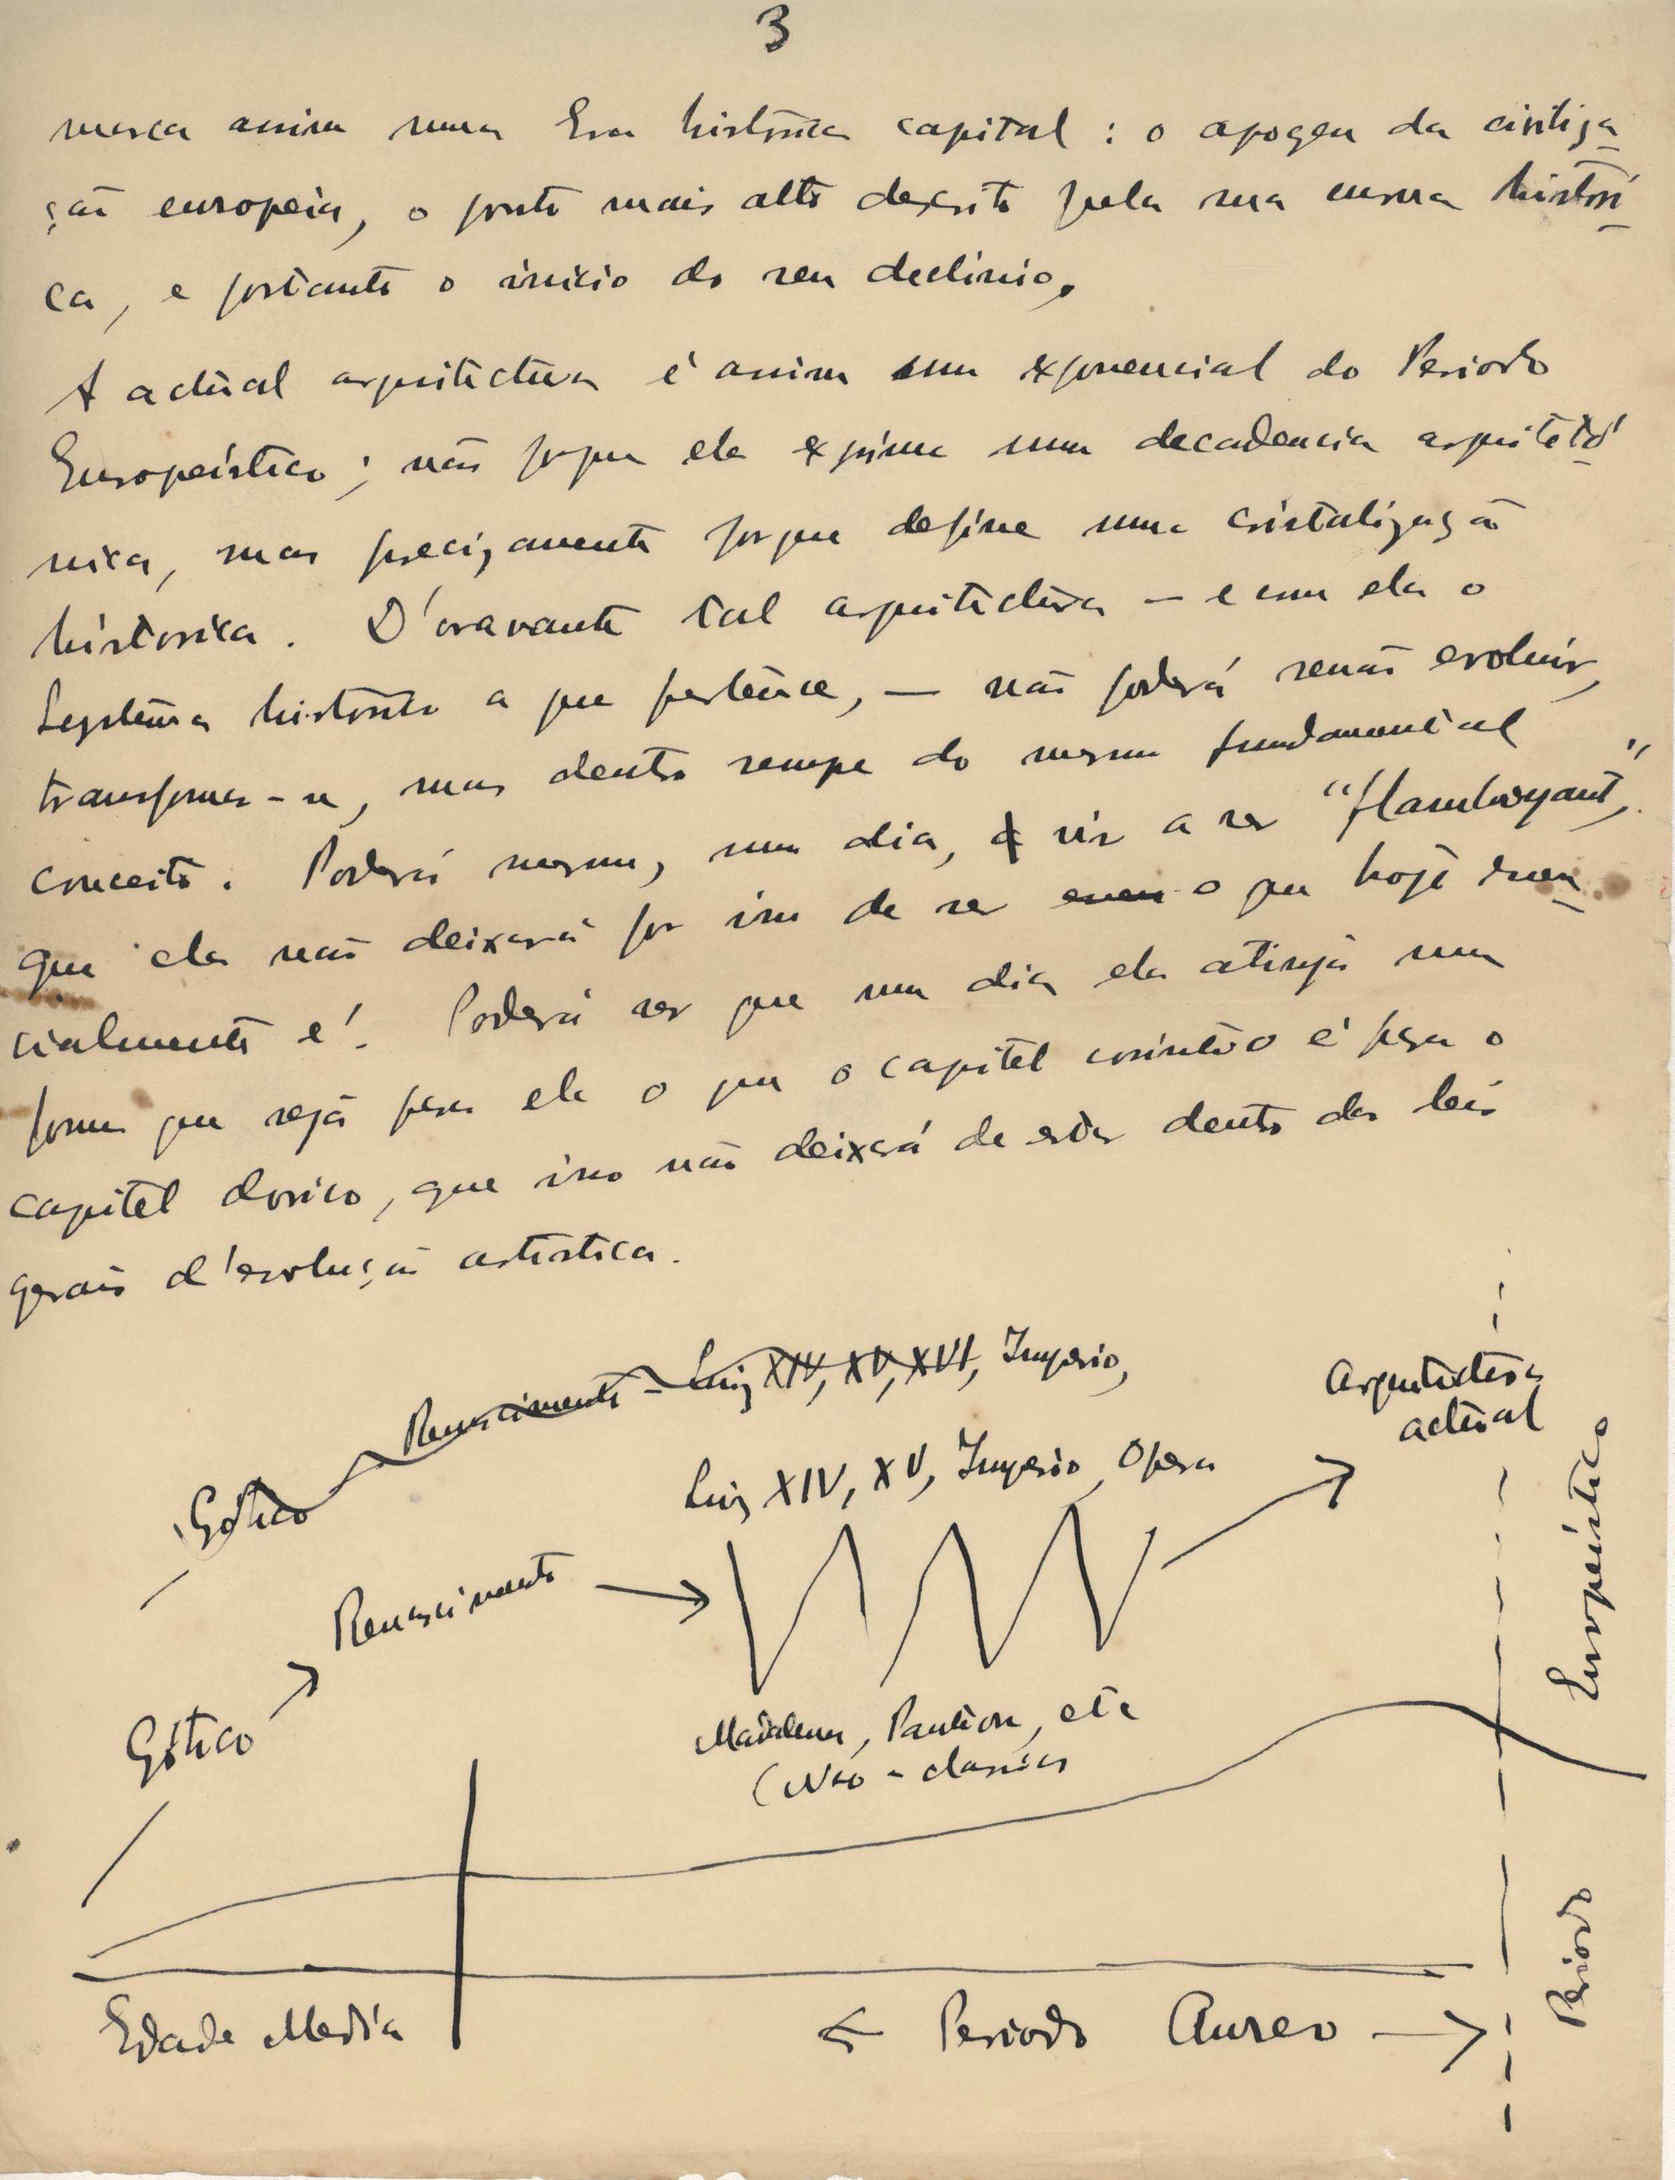 3
marca assim uma Era histórica capital: o apogeu da civiliza-
ção europeia, o ponto mais alto descrito pela sua curva históri-
ca, e portanto o inicio do seu declinio.
A actual arquitectura é assim um exponencial do Periodo
Europeístico; não porque ela exprime uma decadencia arquitetó-
nica, mas precizamente porque define uma cristalização
historica. D'oravante tal arquitectura — e com ela o
Systema historico a que pertence, — não poderá senão evoluir,
transformar-se, mas dentro sempre do mesmo fundamental
conceito. Poderá mesmo, um dia, vir a ser "flamboyant",
que ela não deixará por isso de ser o que hoje essen-
cialmente é! Poderá ser que um dia ela atinja uma
forma que seja para ela o que o capitel corintio é para o
capitel dorico, que isso não deixará de estar dentro das leis
gerais d'evolução artistica.
Gótico Renascimento - Luiz XIV, XV, XVI, Imperio,
Arquitectura
actual
Luiz XIV, XV, Imperio, Opera
Renascimento
Gótico
Madalena, Pantion, etc
(Neo-classicas
Edade Media
← Periodo Aureo →
Periodo Europeístico